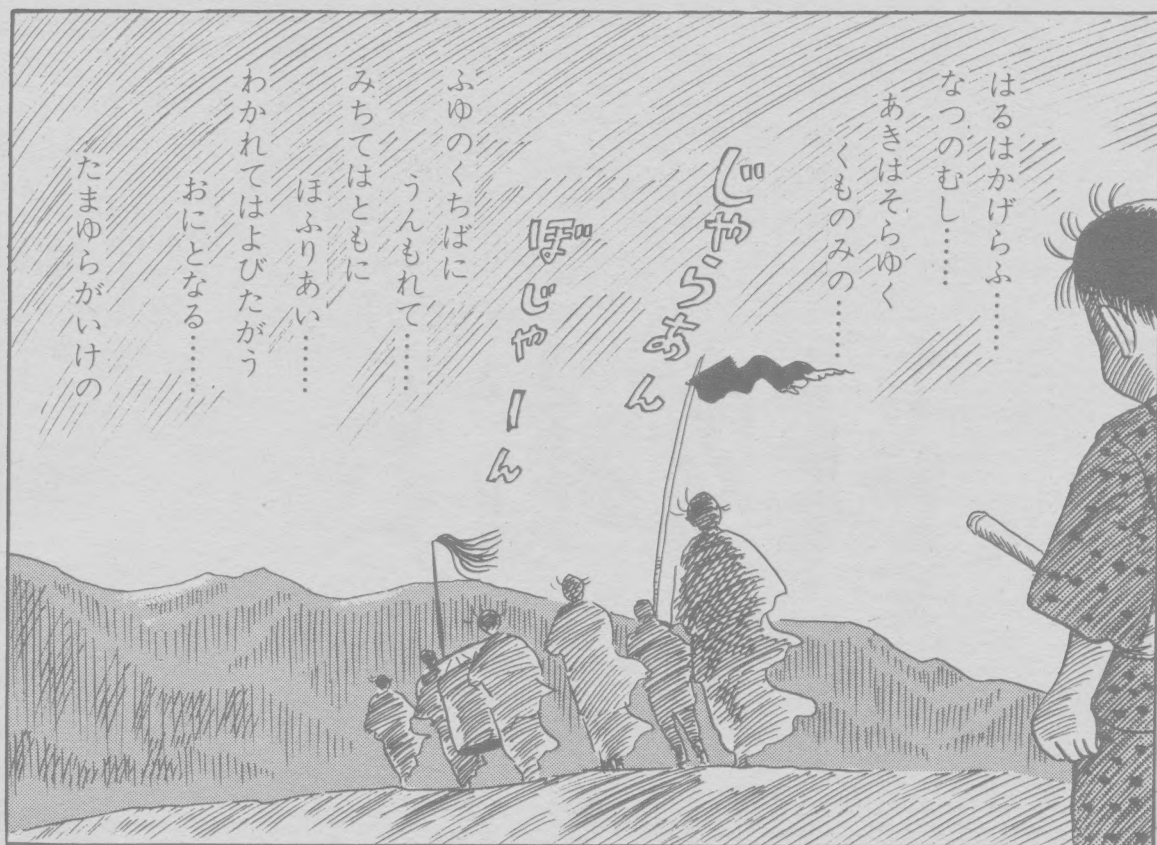 はるはかげらふ……
なつのむし……
あきはそらゆく
くものみの……
じゃらあん
ぼじゃーん
ふゆのくちばに
うんもれて……
みちてはともに
ほふりあい……
わかれてはよびたがう
おにとなる……
たまゆらがいけの